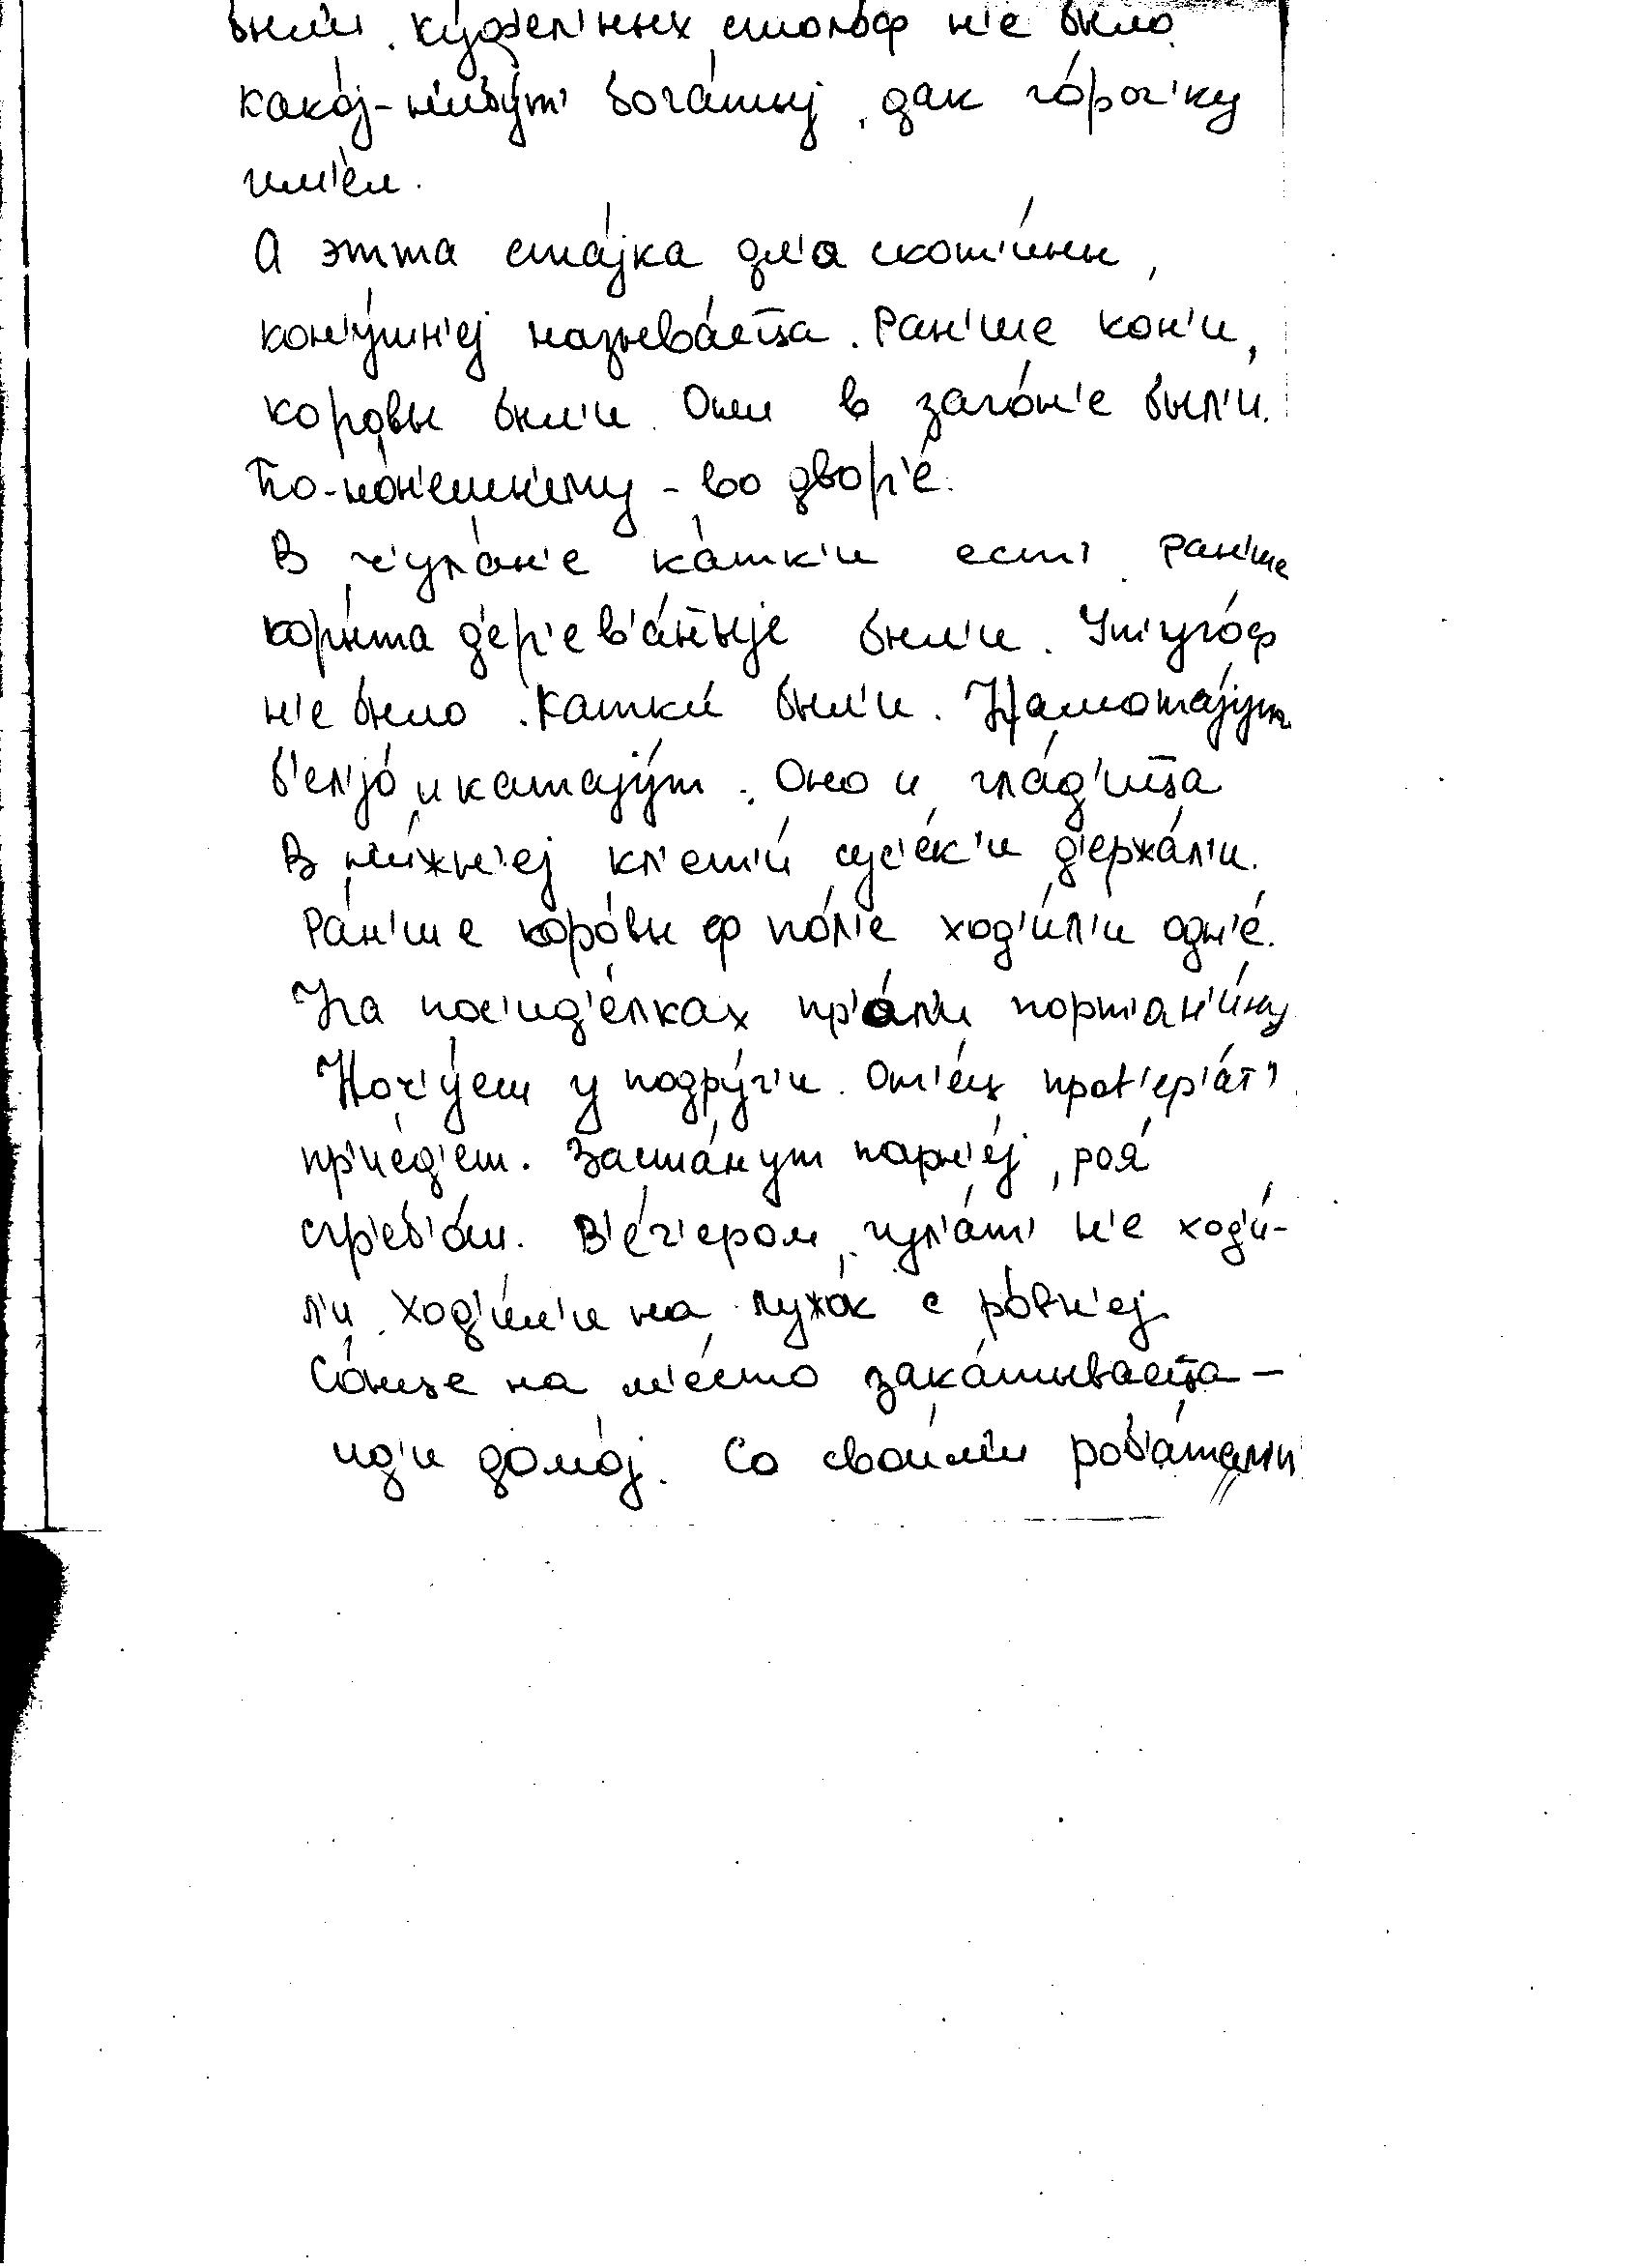 были. ку́д'ел'ных столо́ф н'е было.
како́j-н'ибу́т' бога́тыj, дак го́рог'ку
им'е́л.
А этта ста́jка дл'а скот'и́ны,
кон'у́шн'еj называ́еца. Ран'ше ко́н'и,
коро́вы был'и. Они в заго́н'е был'и.
По-но́н'ешн'ему - во двор'е́.
В ч'ула́н'е ка́тк'и ест'. Ран'ше
коры́та д'ер'ев'а́ныjе был'и. Ут'уго́ф
н'е было. Катки́ был'и. Намота́jут
б'ел'jо́ и катаjу́т. Оно и гла́д'ица
В н'и́жн'еj кл'ет'и́ сус'е́к'и д'ержа́л'и.
Ра́н'ше коро́вы ф по́л'е ход'и́л'и одн'е́.
На пос'ид'е́лках пр'а́л'и портан'и́ну
Ноч'у́еш у подру́г'и. От'е́ц пров'ер'а́т'
пр'ие́д'ет. Заста́нут парн'е́j,
сгр'еб'о́ш. В'е́ч'ером гул'а́т' н'е ход'и́-
л'и. Ход'и́л'и на лужо́к с ро́вн'еj
Со́нце на м'е́сто зака́тываеца -
ид'и домо́j. Со свои́м'и роб'а́там'и